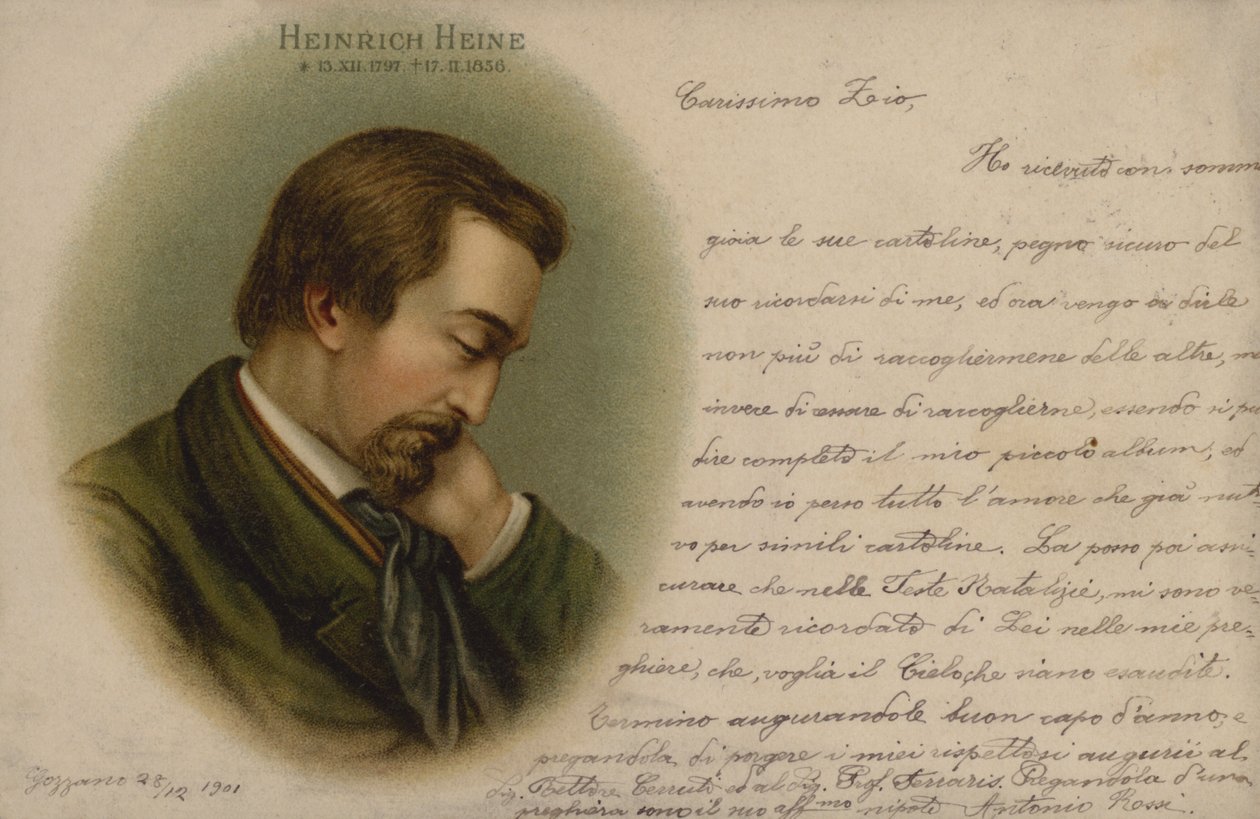 HEINRICH HEINE
* 13.XII.1797. †17.II.1856.
Carissimo Zio,
Ho ricevuto con somma
gioia le sue cartoline, pegno sicuro del
suo ricordarsi di me, ed ora vengo a dirle
non più di raccogliermene delle altre, ma
invece di cessare di raccoglierne, essendo si può
dire completo il mio piccolo album, ed
avendo io perso tutto l'amore che già nuti
vo per simili cartoline. La posso poi assi-
curare che nelle Feste Natalizie, mi sono ve-
ramente ricordato di Lei nelle mie pre-
ghiere, che, voglia il Cielo, che siano esaudite.
Termino augurandole buon capo d'anno, e
pregandola di porgere i miei rispettosi augurii al
dig. Rettore Cerruti ed al dig. Prof. Ferraris. Pregandola d'una
preghiera sono il suo aff.mo nipote Antonio Rossi.
Gozzano 28/12 1901